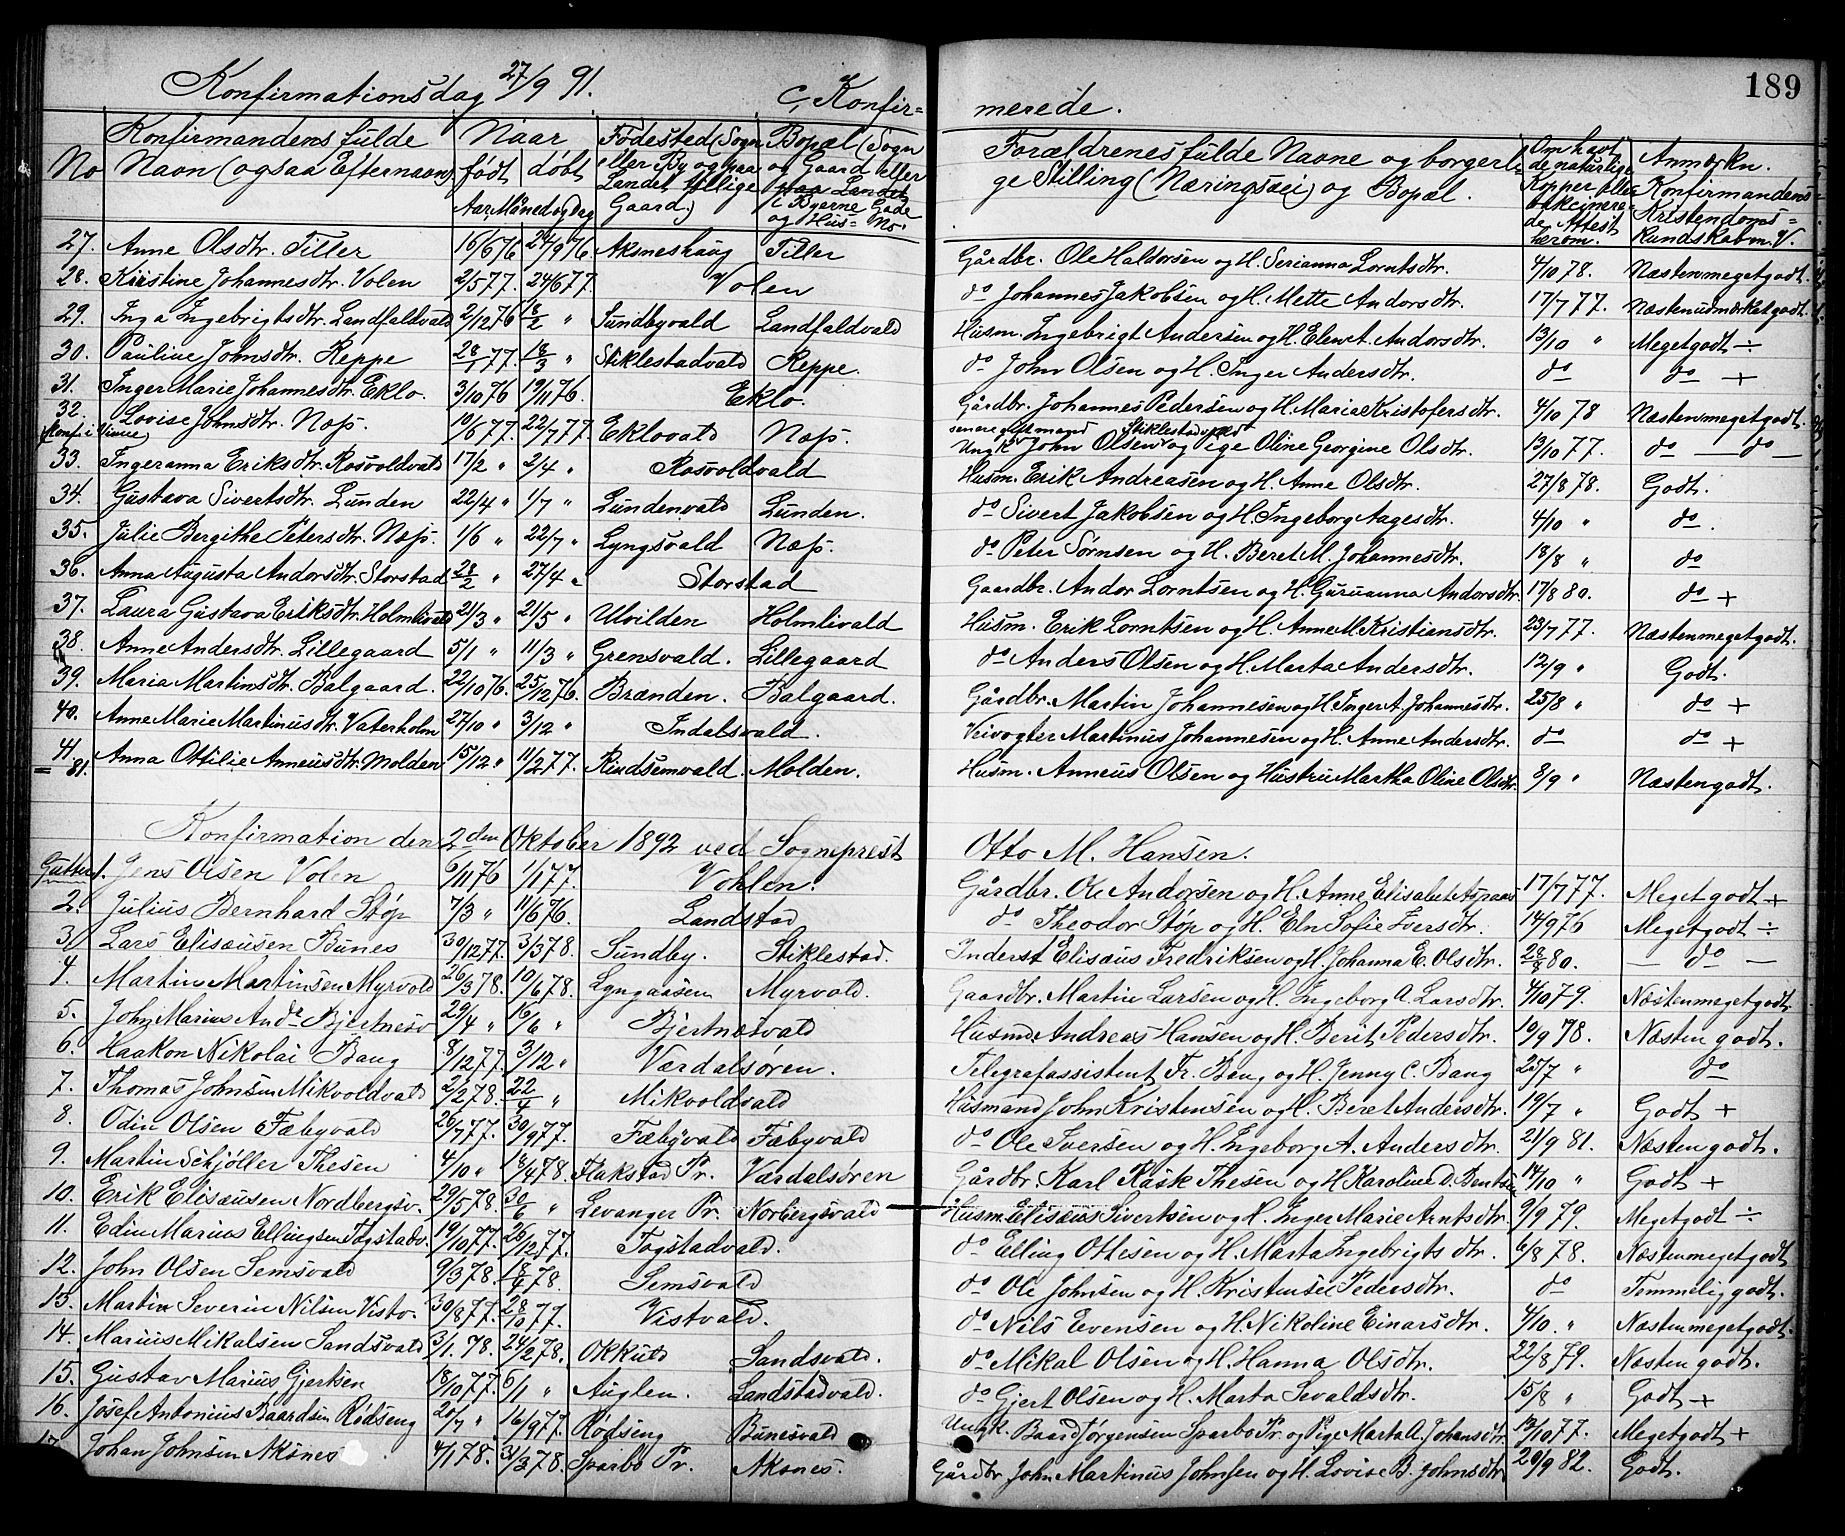 189
Konfirmationsdag 27/9 91. C, Konfir= merede.
No Konfirmandens fulde Navn (ogsaa Efternavn) Naar født døbt Aar, Måned og Dag Fødested (Sogn eller By og paa Landet tillige Gaard) Bopæl (Sogn og Gaard eller paa Landet i Byerne Gade og Hus= No. Forældrenes fulde Navne og borgerlige Stilling (Næringsvei) og Bopæl. Om havt de naturlige Kopper eller vakcinerede, Attest herom. Anmærkn. Konfirmandens Kristendoms= kundskab m. V.
27. Anne Olsdtr. Tiller 16/6 76 24/9 76 Aksneshaug Tiller Gårdbr. Ole Haldorsen og H. Serianna Lorntsdtr. 4/10 78. Næsten meget godt.
28. Kristine Johannesdtr. Volen 2/5 77. 24/6 77. Volen do Johannes Jakobsen og H. Mette Andorsdtr. 17/7 77. Næsten udmærket godt.
29. Inga Ingebrigtsdtr. Landfaldvald 2/12 76 18/2 " Sundbyvald Landfaldvald Husm. Ingebrigt Andersen og H. Elen A. Andorsdtr. 13/10 " Meget godt ÷
30. Pauline Johnsdtr. Reppe 28/1 77. 18/3 " Stiklestadvald Reppe. do John Olsen og H. Inger Andersdtr. do do +
31. Inger Marie Johannesdtr. Eklo. 3/10 76 19/11 76. Eklo. Gårdbr. Johannes Pedersen og H. Maria Kristofersdtr. 4/10 78 Næsten meget godt.
32. Lovise Johnsdtr. Næss. 10/6 77. 22/7 77. Eklovald Næss. Ungk. John Olsen og Pige Oline Georgine Olsdtr. 13/10 77. do — do —
(Konf. i Vinne) senere Stiklestadvald
33. Ingeranna Eriksdtr. Rosvoldvald 17/2 " 2/4 " Rosvoldvald Husm. Erik Andreasen og H. Anne Olsdtr. 27/8 78. Godt.
34. Gustava Sivertsdtr. Lunden 22/4 " 1/7 " Lundenvald Lunden. do Sivert Jakobsen og H. Ingeborg Aagesdtr. 4/10 " do.
35. Julie Bergithe Petersdtr. Næss. 1/6 " 22/7 " Lyngsvald Næss. do Peter Sørnsen og H. Beret M. Johannesdtr. 18/8 " do
36. Anna Augusta Andorsdtr. Storstad 28/2 " 27/4 " Storstad Gaardbr. Andor Lorntsen og H. Guruanna Andorsdtr. 17/8 80. do +
37. Laura Gustava Eriksdtr. Holmlivald 21/3 " 21/5 " Ulvilden Holmlivald Husm. Erik Lorntsen og H. Anne M. Kristiansdtr. 23/7 77. Næsten meget godt.
38. Anne Andersdtr. Lillegaard 5/1 " 11/3 " Grensvald. Lillegaard do Anders Olsen og H. Marta Andersdtr. 12/9 " Godt.
39. Maria Martinsdtr. Balgaard. 22/10 76. 25/12 76. Brænden. Balgaard. Gårdbr. Martin Johannesen og H. Inger A. Johannesdtr. 25/8 " do +
40. Anne Marie Martinusdtr. Vaterholm 27/10 " 3/12 " Indalsvald. Veivogter Martinus Johannesen og H. Anne Andersdtr. do do +
41. Anna Ottilie Anneusdtr. Molden 15/12 " 11/2 77. Rindsemvald. Molden. Husm. Anneus Olsen og Hustru Martha Oline Olsdtr. 3/9 " Næsten godt.
81.
Konfirmation den 2den Oktober 1892 ved Sogneprest Otto M. Hansen.
Gutter 1. Jens Olsen Volen 6/11 76 1/1 77. Vohlen. Gårdbr. Ole Andorsen og H. Anne Elisabet Aspaas 17/7 77. Meget godt +
2. Julius Bernhard Støp 7/3 " 11/6 76. Landstad do Theodor Støp og H. Eln Sofie Iversdtr. 14/9 76 Meget godt ÷
3. Lars Elisæusen Bunes 30/12 77. 3/3 78. Sundby. Stiklestad. Inderst Elisæus Fredriksen og H. Johanna E. Olsdtr. 28/8 80. — do —
4. Martin Martinsen Myrvold 26/3 78. 10/6 78. Lyngaasen Myrvold. Gaardbr. Martin Larsen og H. Ingeborg A. Larsdtr. 4/10 79. Næsten meget godt
5. John Marius And. Bjertnesv. 29/4 " 16/6 " Bjertnæsvald Husm. Andreas Hansen og H. Berit Pedersdtr. 10/9 78. Næsten godt.
6. Haakon Nikolai Bang 8/12 77. 3/12 " Værdalsøren. Telegrafassistent Fr. Bang og H. Jenny C. Bang 25/7 " do
7. Thomas Johnsen Mikvoldvald 2/2 78. 22/4 " Mikvoldvald Husmand John Kristensen og H. Beret Andersdtr. 19/7 " Godt +
8. Odin Olsen Fæbyvald 26/7 77. 30/9 77. Fæbyvald Fæbyvald do Ole Iversen og H. Ingeborg A. Andersdtr. 21/9 81. Næsten godt.
9. Martin Schjøller Thesen 4/10 " 18/4 78. Flakstad Pr. Værdalsøren Gårdbr. Karl Rask Thesen og H. Karoline D. Bentsen 14/10 " Godt +
10. Erik Elisæusen Nordbergsv. 29/5 78. 30/6 " Levanger Pr. Norbergsvald Husm. Elisæus Sivertsen og H. Inger Marie Arntsdtr. 9/9 79. Meget godt ÷
11. Edin Marius Ellingsen Togstadv. 19/10 77. 26/12 77. Togstadvald. do Elling Ottesen og H. Marta Ingebrigtsdtr. 6/8 78. Næsten meget godt
12. John Olsen Semsvald 9/3 78. 18/4 78 Semsvald do Ole Johnsen og H. Kristense Pedersdtr. do Temmelig godt.
13. Martin Severin Nilsen Vistv. 30/8 77. 28/10 77. Vistvald. do Nils Evensen og H. Nikoline Einarsdtr. 4/10. " Næsten meget godt.
14. Marius Mikalsen Sandsvald 3/1. 78. 24/2 78. Okkuld Sandsvald. do Mikal Olsen og H. Hanna Olsdtr. 22/8 79. Næsten godt.
15. Gustav Marius Gjertsen 18/10 77. 6/1 " Auglen. Landstadvald. do Gjert Olsen og H. Marta Sevaldsdtr. 15/8 " Godt +
16. Josef Antonius Baardsen Rødseng 20/7 " 16/9 77. Rødseng Bunesvald Ungk. Baard Jørgensen Sparbo Pr. og Pige Marta A. Johansdtr. 13/10 77. Meget godt +
Johan Johnsen Aksnes 4/1 78. 31/3 78. Sparbo Pr. Aksnes. Gårdbr. John Martinus Johnsen og H. Lovise B. Johnsdtr. 20/9 82. Godt.